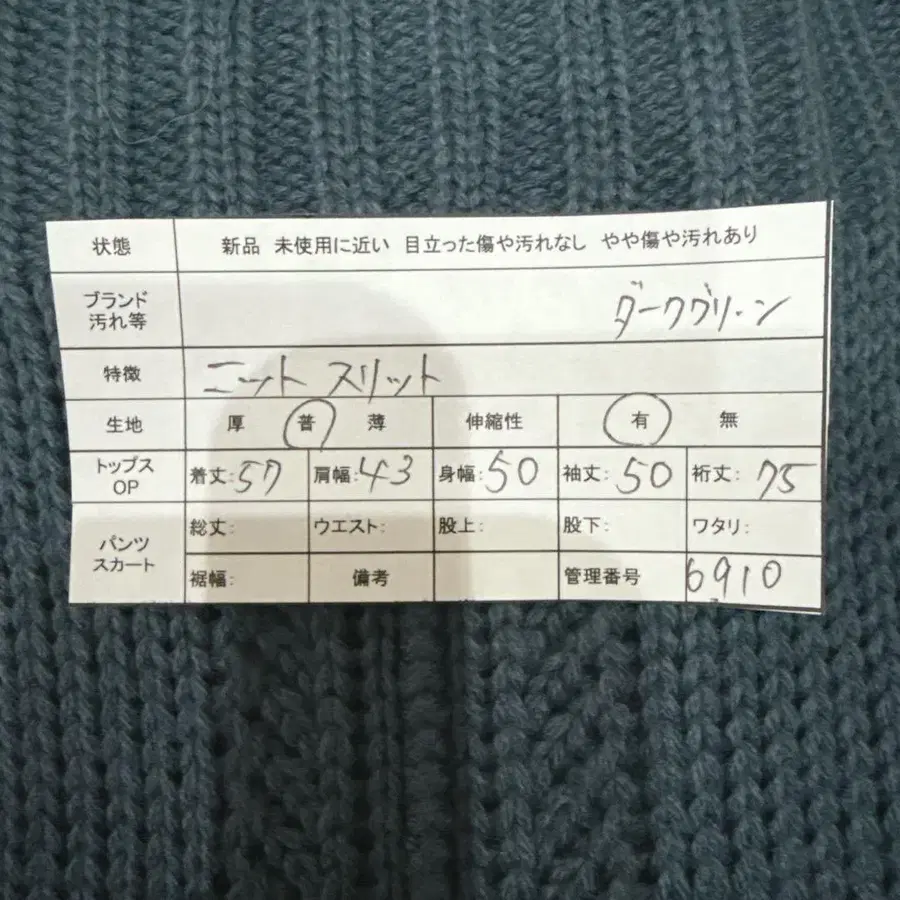 状態 新品 未使用に近い 目立った傷や汚れなし やや傷や汚れあり
ブランド
汚れ等 ダークグリーン
特徴 ニット スリット
生地 厚 普 薄 伸縮性 有 無
トップス
OP 着丈:57 肩幅:43 身幅:50 袖丈:50 裄丈:75
パンツ
スカート 総丈: ウエスト: 股上: 股下: ワタリ:
裾幅: 備考 管理番号 6910